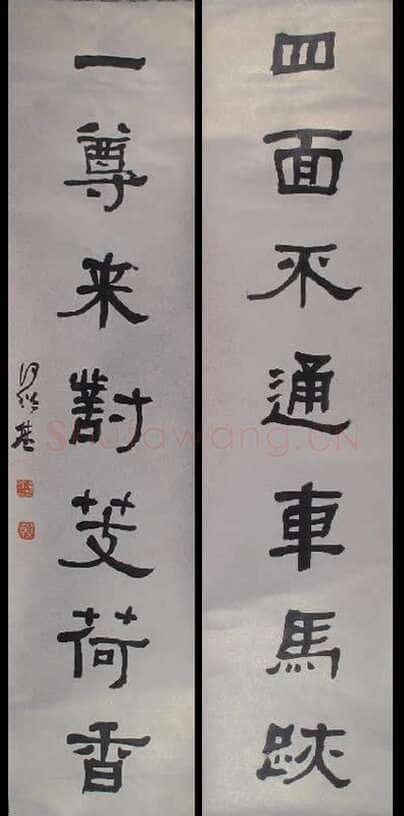 四面不通車馬跡
一尊来對芰荷香
何紹基
Shufawang.CN